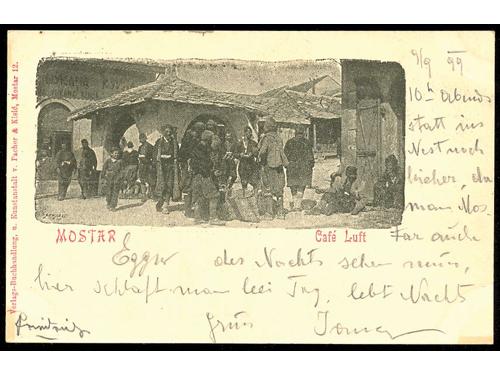 9/9 99
10h Abends
statt ins
Nest noch
hieher, da
man Mos-
tar auch
des Nachts sehen muss,
hier schläft man bei Tag, lebt Nachts
MOSTAR
Café Luft
Verlags-Buchhandlung, u. Kunstanstalt v. Pacher & Kisić, Mostar 12.